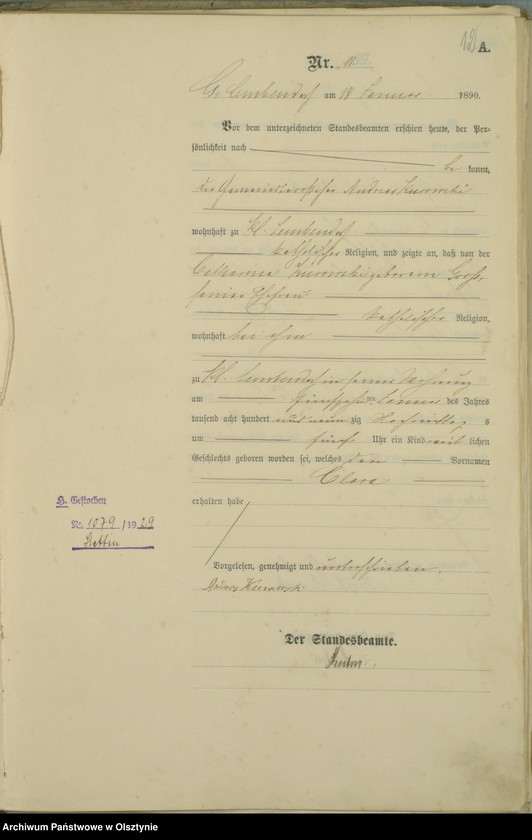 12 A.
Nr. 11.
Gr. Lembendorf am 18 Januar 1890.
Vor dem unterzeichneten Standesbeamten erschien heute, der Per-
sönlichkeit nach
be kannt,
der Gemeindevorsteher Andreas Kurowski
wohnhaft zu Kl. Lembendorf
katholischer Religion, und zeigte an, daß von der
Catharina Kurowski geborene
seiner Ehefrau
katholischer Religion,
wohnhaft bei ihm
zu Kl. Lembendorf in seiner Wohnung
am fünfzehnten Januar des Jahres
tausend acht hundert und neun zig Nachmittag s
um fünf Uhr ein Kind weib lichen
Geschlechts geboren worden sei, welches den Vornamen
Clara
erhalten habe
Vorgelesen, genehmigt und unterschrieben.
Andreas Kurowski
Der Standesbeamte.
H. Gestorben
Nr. 1079 / 1929
Stettin
Archiwum Państwowe w Olsztynie